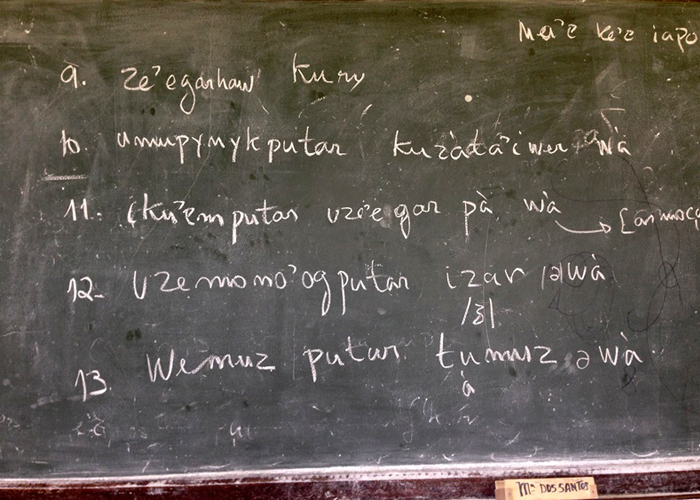 Ma'e ke'e iapo
9. Ze'egarhaw kury
10. umupynykputar kuzàtà'iwer wà
11. iku'emputar uze'egar pà wà
12. Uzemono'ogputar izar /ə/wà
/ʒ/
13. Wemuz putar tumuz ə wà
à
Mº DOS SANTOS